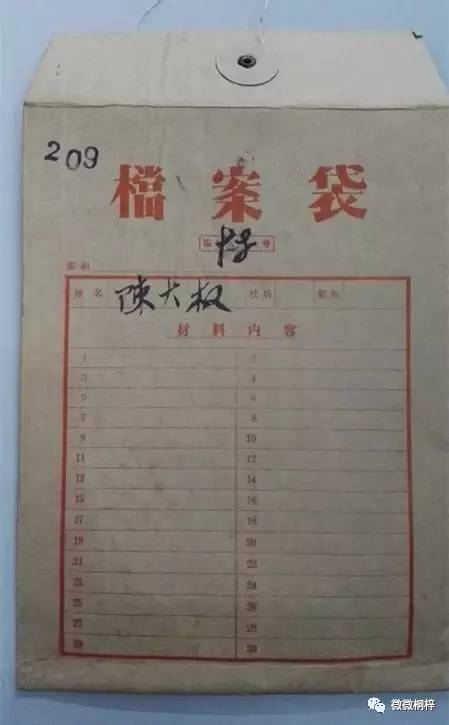 209
檔案袋
編 号
姓名 陳大权
材料内容
1 2
3 4
5 6
7 8
9 10
11 12
13 14
15 16
17 18
19 20
21 22
23 24
25 26
27 28
29 30
微微桐梓